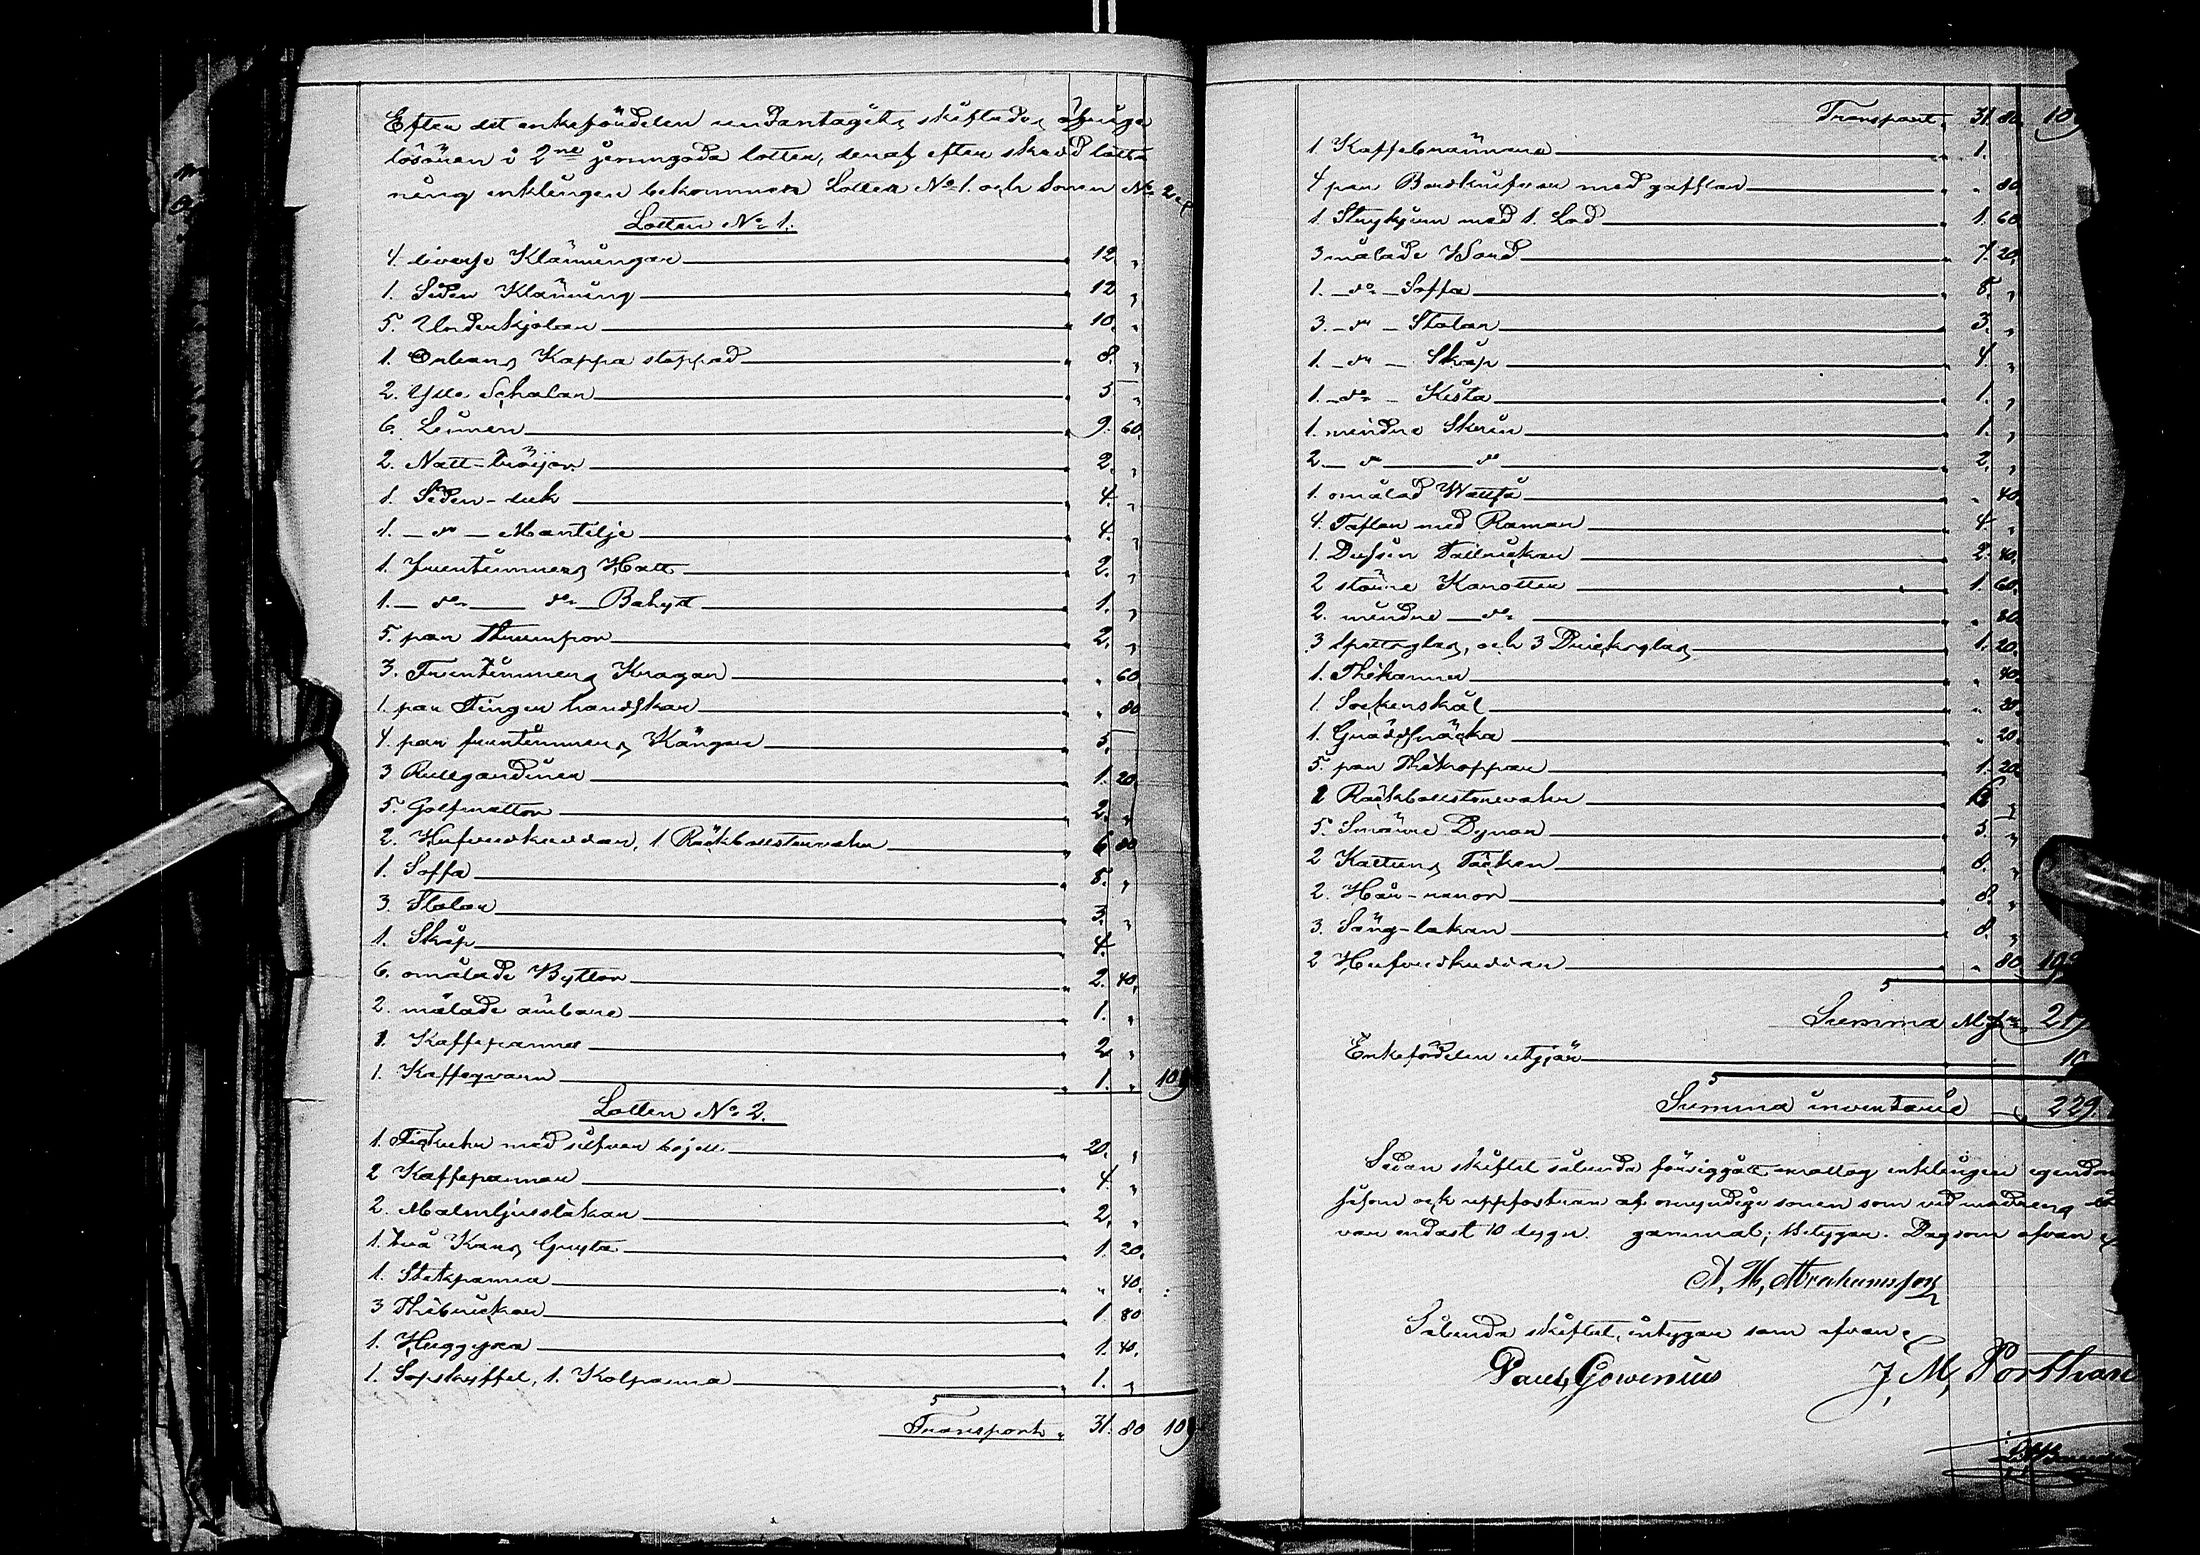 Efter det enkefördelen undantagits, skiftades öfriga
lösören i 2ne jemngoda lotter, deraf efter skedd lott-
ning enklingen bekommer Lotten No 1. och Sonen No 2.
Lotten No 1.
4. diverse Klädningar 12 „
1. Siden Klädning 12 „
5. Underkjolar 10. „
1. Orleans Kappa stoppad 8. „
2. Ylle Schalar 5 „
6. Linnen 9. 60.
2. Natt-tröijor 2. „
1. Siden-duk 4. „
1. — do — Mantilje 4. „
1. fruentimmers Hatt 2. „
1. — do — do — Bahytt 1. „
5. par Strumpor 2. „
3. Fruentimmers Kragar „ 60.
1. par Finger handskar „ 80
4. par fruentimmers Kängor 5. „
3 Rullgardiner 1. 20.
5. Golfmattor 2. „
2. Hufvudkuddar, 1 Räckbolstervahr 6 80
1. Soffa 5. „
3. Stolar 3. „
1. Skåp 4. „
6. omålade Byttor 2. 40.
2. målade ämbare 1. „
1. Kaffepanna 2 „
1. Kaffeqvarn 1. „ 109
Lotten No 2.
1. Fickuhr med silfverböjett 20. „
2 Kaffepannor 4. „
2. Malmljusstakar 2. „
1. två Kans Gryta 1. 20.
1. Stekpanna „ 40.
3 Thebrickor 1 80
1. Huggyxa 1. 40.
1. Sopskyffel, 1. Kolpanna 1. „
Transport. 31. 80 109
Transport. 31. 80. 109
1 Kaffebrännare 1.
4 par Bordknifvar med gafflar „ 80
1. Strykjern med 1. Lod 1. 60
3 målade Bord 7. 20.
1. — do — Soffa 5. „
3. — do — Stolar 3. „
1. — do — Skåp 4. „
1. — do — Kista 1. „
1. mindre Skrin 1. „
2. — do — do 2. „
1. omålad „ 40
4. Taflor med Ramar 4 „
1. Dussin Tallrickar 2. 40.
2 större Karotter 1. 60.
2. mindre — do „ 80.
3 spetsglas, och 3 Dricksglas 1. 20.
1. Thekanna „ 40.
1 Sockerskål „
1. Gräddsnäcka „ 20.
5. par Thekoppar 1. 20
Räckbolstervahr „
5. Smärre Dynor 5. „
2 Kattuns Täcken 8. „
2. 8. „
3. Säng-lakan 8. „
2 Hufvudkuddar „ 80 109
Summa Mk 217
Enkefördelen utgjör
Summa inventarie 229
Sedan skiftet sålunda försiggått emottog enklingen egendom
såsom ock uppfostran af omyndige sonen som vid modrens död
var endast 10 dygn gammal; betygar. Dag som ofvan
A. W. Abrahamsson
Sålunda skiftet, intygar som ofvan
Paul Gowenius J. M. Porthan